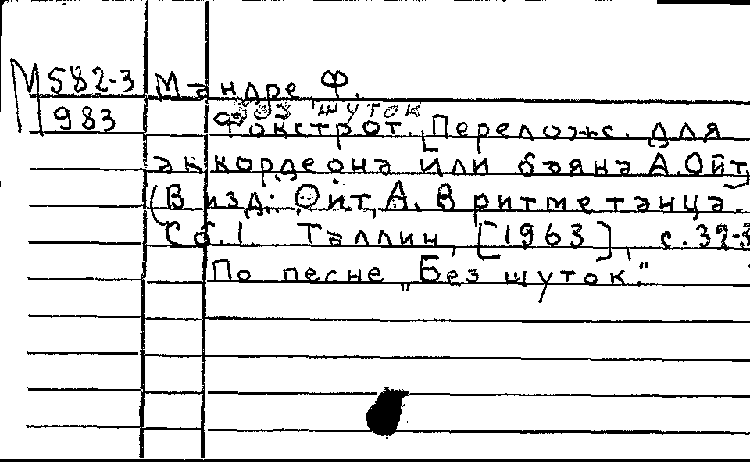 М 582-3 Мандре, Ф.
983 Без шуток
Фокстрот. [Перелож. для
аккордеона или баяна А. Ойт]
(В изд.: Ойт, А. В ритме танца.
Сб. 1. Таллин, [1963], с. 39-3
По песне „Без шуток."